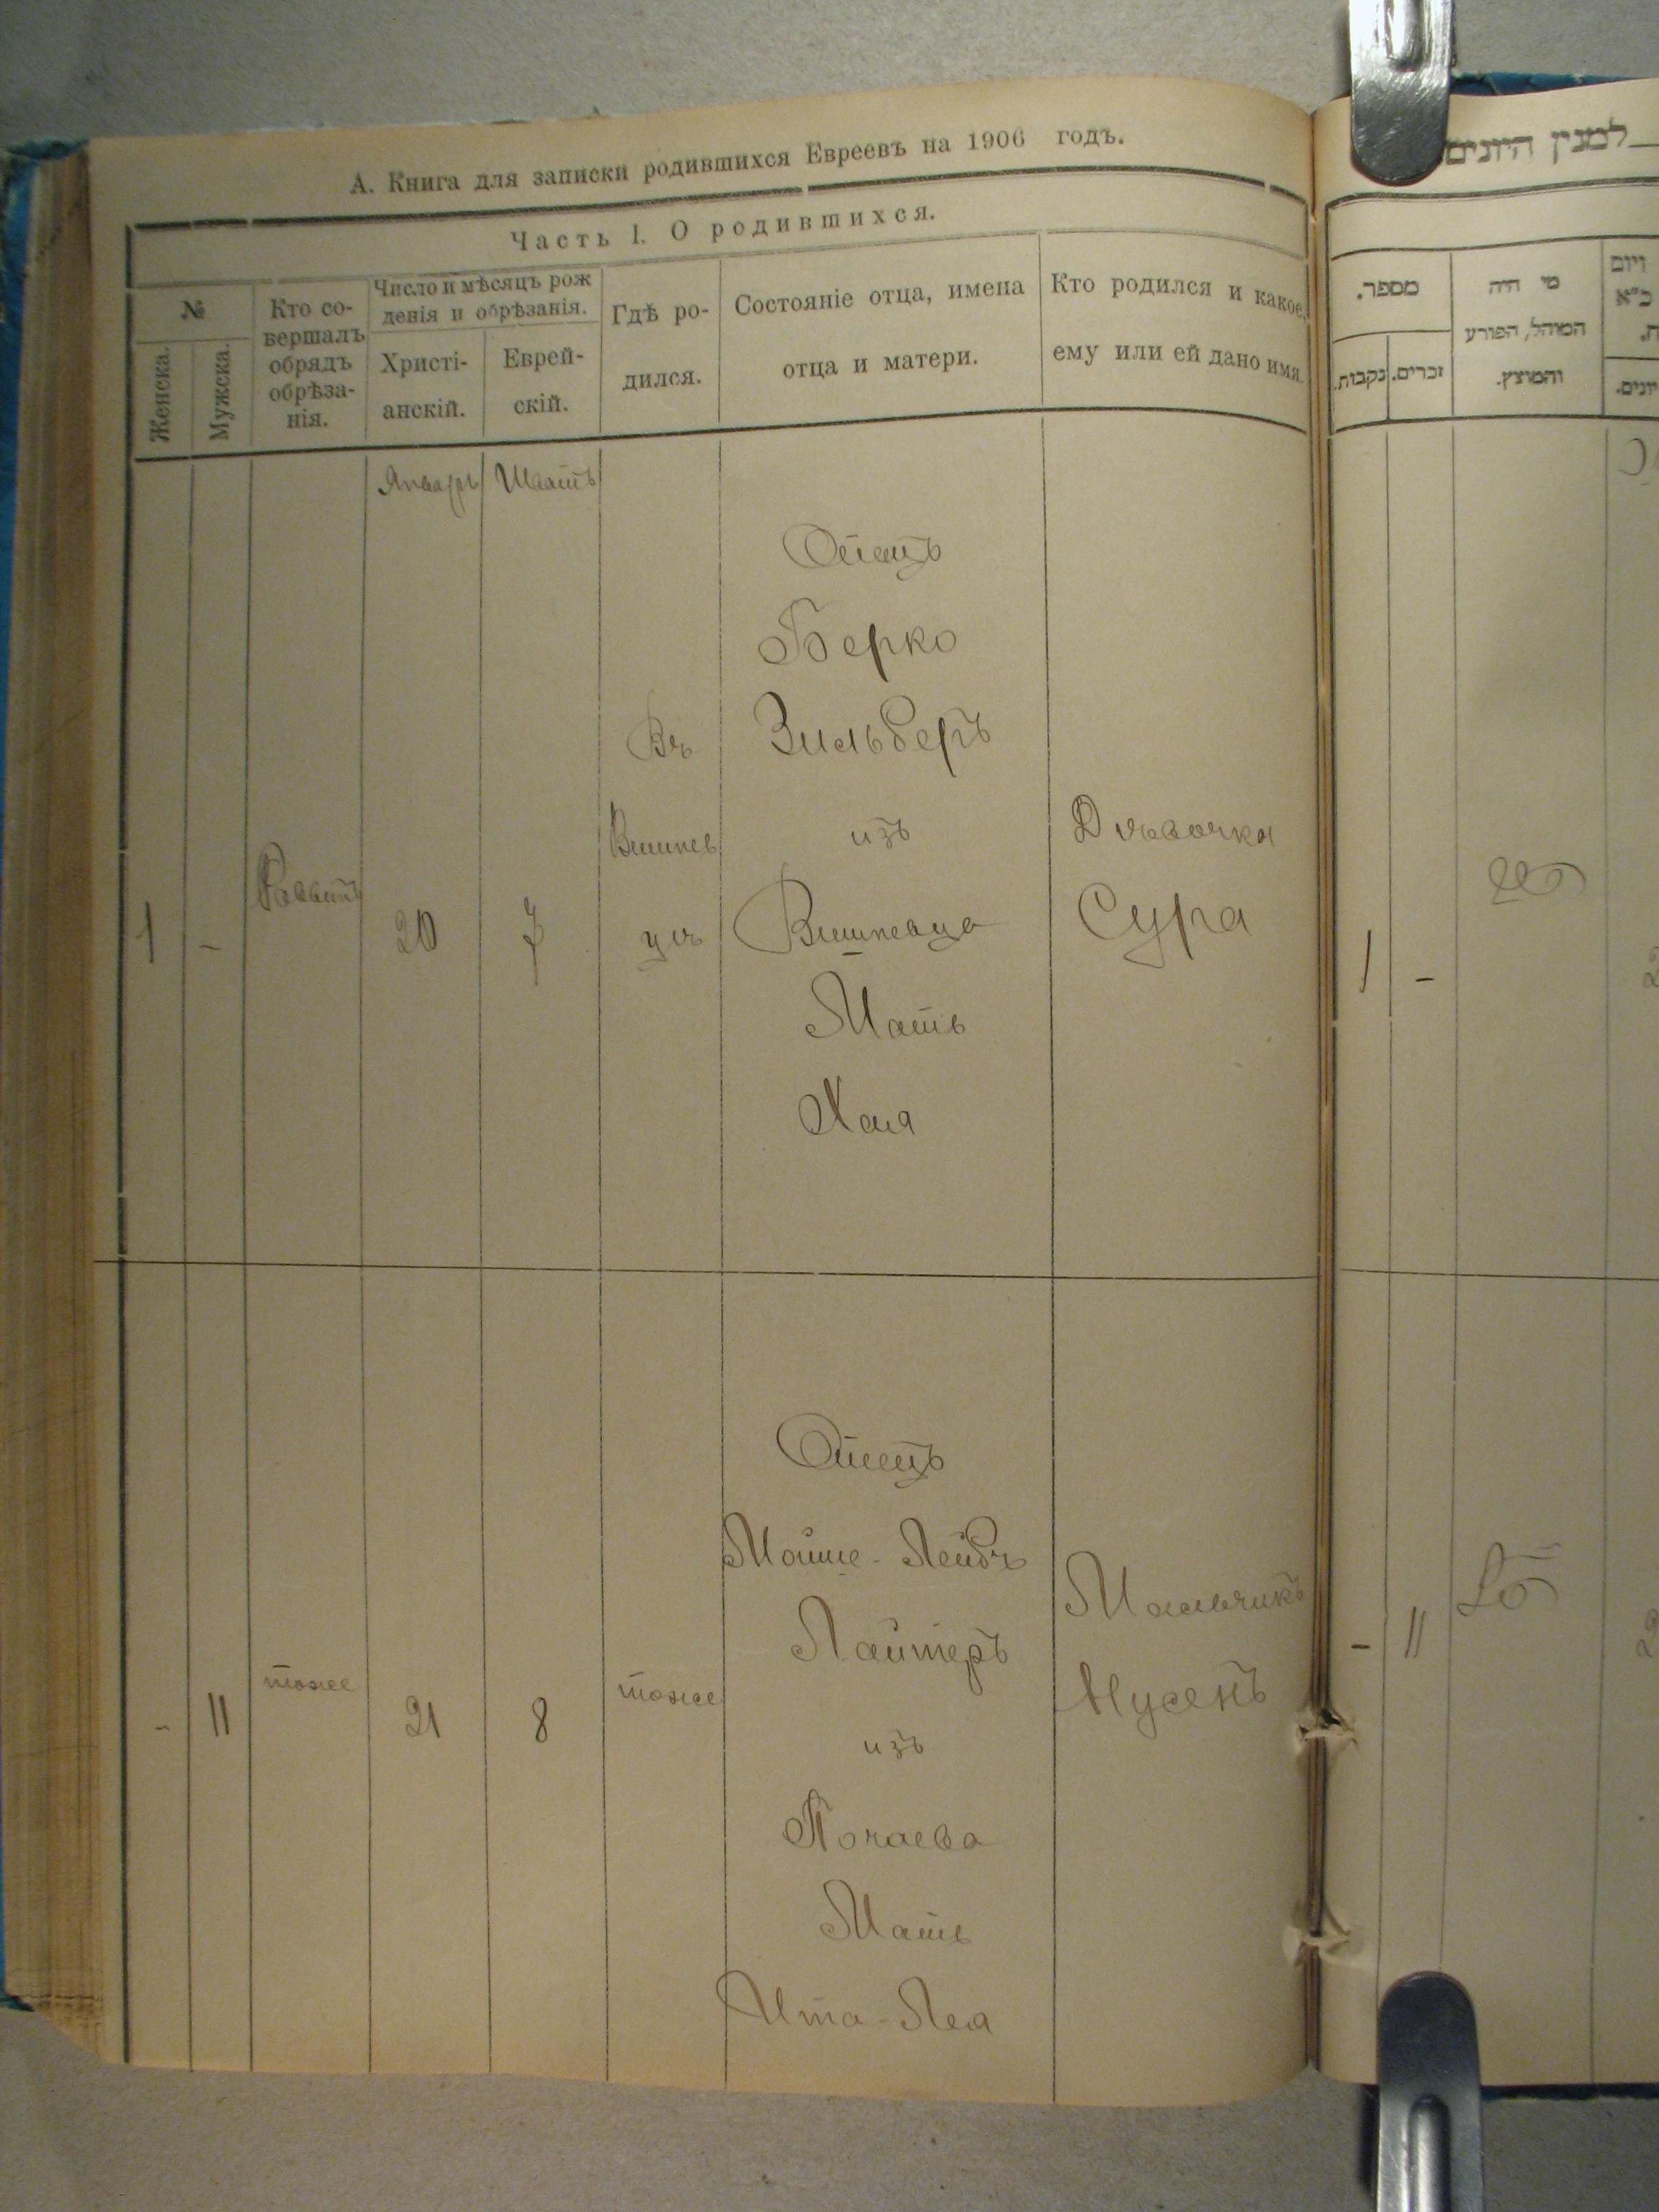 А. Книга для записки родившихся Евреевъ на 1906 годъ.
Часть I. О родившихся.
№
Женска.
Мужска.
Кто со-
вершалъ
обрядъ
обрѣза-
нія.
Число и мѣсяцъ рож
денія и обрѣзанія.
Христі-
анскій.
Еврей-
скій.
Гдѣ ро-
дился.
Состояніе отца, имена
отца и матери.
Кто родился и какое,
ему или ей дано имя.
Январь
Шватъ
1
-
Раввинъ
20
7
Въ
Вишнев
цѣ
Отецъ
Берко
Зильберъ
изъ
Вишневца
Мать
Хая
Дѣвочка
Сура
-
11
тоже
21
8
тоже
Отецъ
Мойше-Лейбъ
Лайтеръ
изъ
Почаева
Мать
Ита-Лея
Мальчикъ
Нусенъ
למנין היונים
מספר.
נקבות.
זכרים.
מי היה
המוהל, הפורע
והמוצץ.
ויום
1
-
-
11